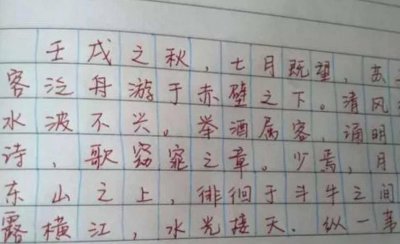 壬戌之秋，七月既望，苏
客泛舟游于赤壁之下。清风
水波不兴。举酒属客，诵明
诗，歌窈窕之章。少焉，月
东山之上，徘徊于斗牛之间
露横江，水光接天．纵一苇